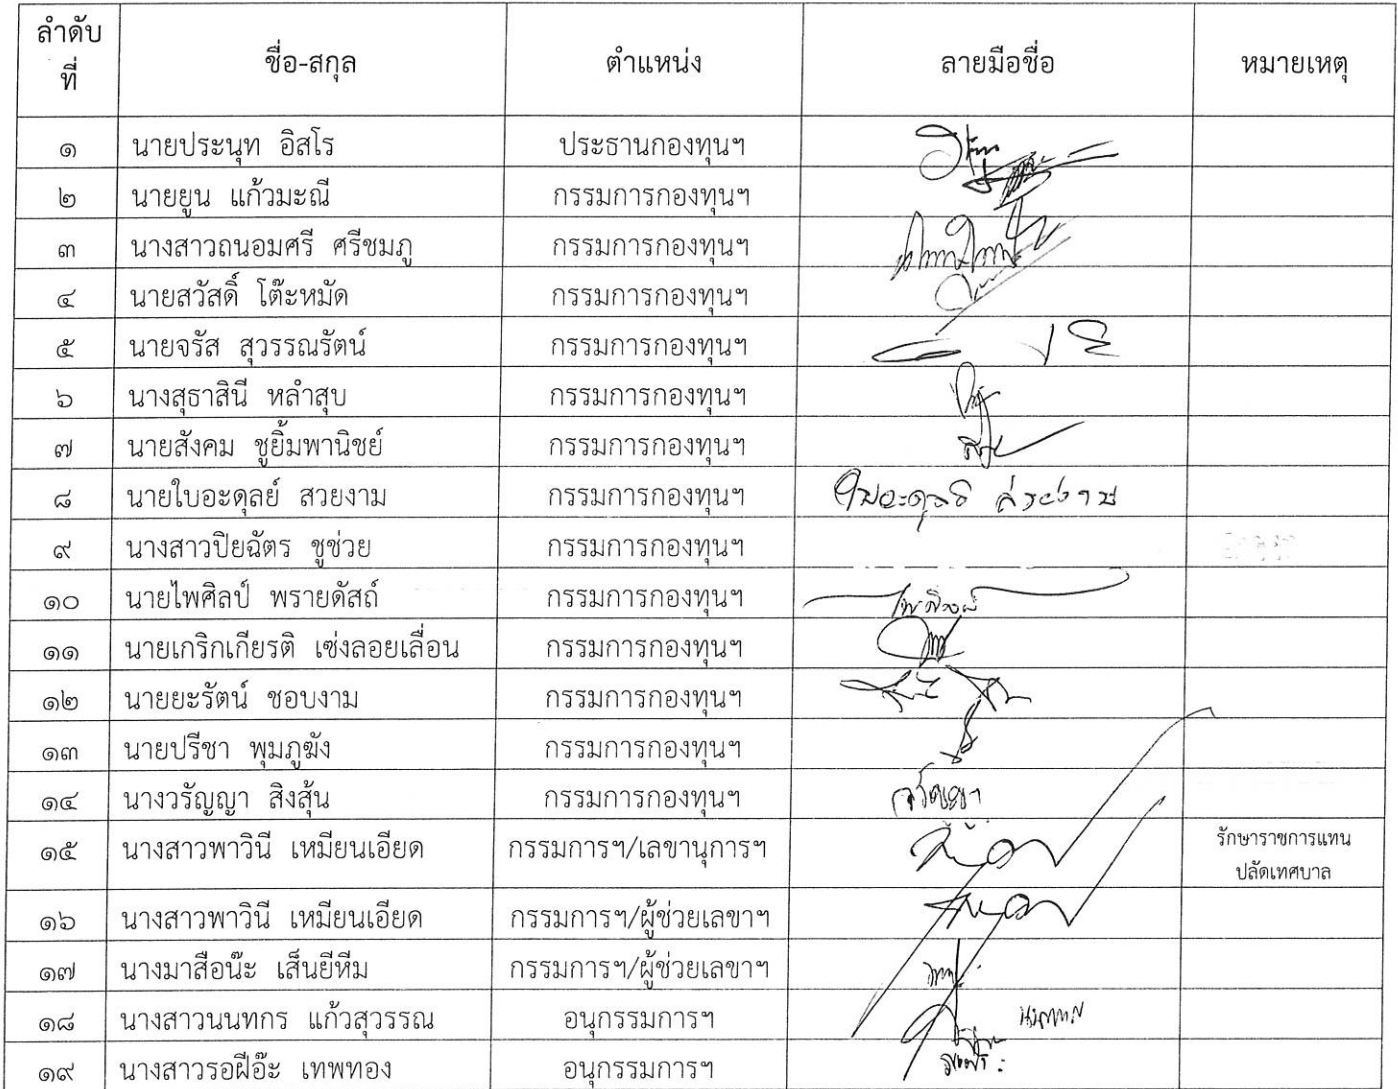 ลำดับ
ที่
ชื่อ-สกุล ตำแหน่ง ลายมือชื่อ หมายเหตุ
๑ นายประนุท อิสโร ประธานกองทุนฯ
๒ นายยูน แก้วมะณี กรรมการกองทุนฯ
๓ นางสาวถนอมศรี ศรีชมภู กรรมการกองทุนฯ
๔ นายสวัสดิ์ โต๊ะหมัด กรรมการกองทุนฯ
๕ นายจรัส สุวรรณรัตน์ กรรมการกองทุนฯ
๖ นางสุธาสินี หลำสุบ กรรมการกองทุนฯ
๗ นายสังคม ชูยิ้มพานิชย์ กรรมการกองทุนฯ
๘ นายใบอะดุลย์ สวยงาม กรรมการกองทุนฯ ใบอะดุลย์ สวยงาม
๙ นางสาวปิยฉัตร ชูช่วย กรรมการกองทุนฯ
๑๐ นายไพศิลป์ พรายดัสถ์ กรรมการกองทุนฯ ไพศิลป์
๑๑ นายเกริกเกียรติ เซ่งลอยเลื่อน กรรมการกองทุนฯ
๑๒ นายยะรัตน์ ชอบงาม กรรมการกองทุนฯ
๑๓ นายปรีชา พุมภูฆัง กรรมการกองทุนฯ
๑๔ นางวรัญญา สิงสุ้น กรรมการกองทุนฯ วรัญญา
๑๕ นางสาวพาวินี เหมียนเอียด กรรมการฯ/เลขานุการฯ รักษาราชการแทน
ปลัดเทศบาล
๑๖ นางสาวพาวินี เหมียนเอียด กรรมการฯ/ผู้ช่วยเลขาฯ
๑๗ นางมาสือน๊ะ เส็นยีหีม กรรมการฯ/ผู้ช่วยเลขาฯ
๑๘ นางสาวนนทกร แก้วสุวรรณ อนุกรรมการฯ
๑๙ นางสาวรอฝีอ๊ะ เทพทอง อนุกรรมการฯ